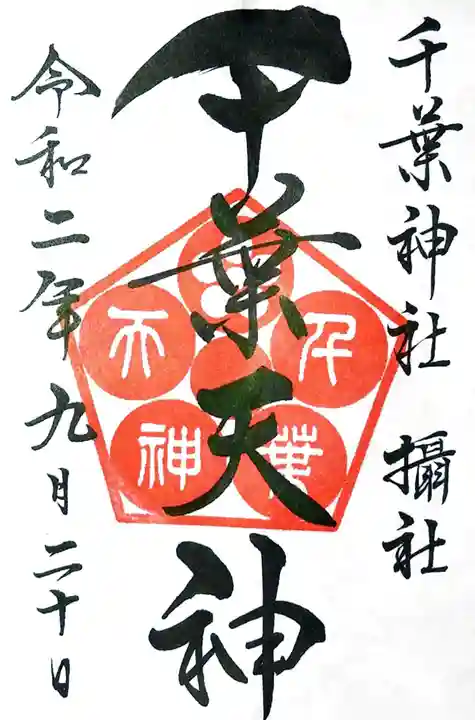 千葉神社 攝社
千葉天神
千葉天神
令和二年九月二十日